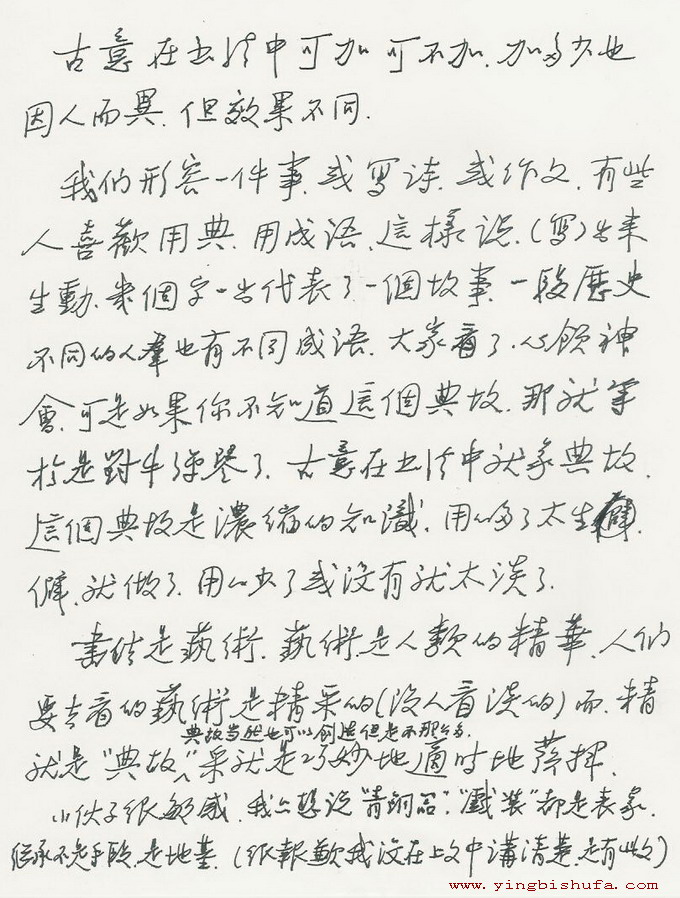 古意在书法中可加可不加.加多少也
因人而異.但效果不同.
我们形容一件事.或写诗.或作文.有些
人喜歡用典.用成语.這樣说.(写)出来
生動.幾個字一出代表了一個故事.一段歷史
不同的人羣也有不同成语.大家看了.心领神
會.可是如果你不知道這個典故.那就等
於是對牛弹琴了.古意在书法中就象典故.
這個典故是濃缩的知識.用的多了太生
僻.就做了.用的少了或没有就太淡了.
書法是藝術.藝術.是人類的精華.人们
要去看的藝術是精采的(没人看淡的)而.精
典故当然也可以创造但是不那么易.
就是"典故"采就是巧妙地適时地發揮.
小伙子很敏感.我只想说"青銅器"."戲装"都是表象.
继承不是手段.是地基.(很報歉我没在上文中講清楚.是有些收)
www.yingbishufa.com